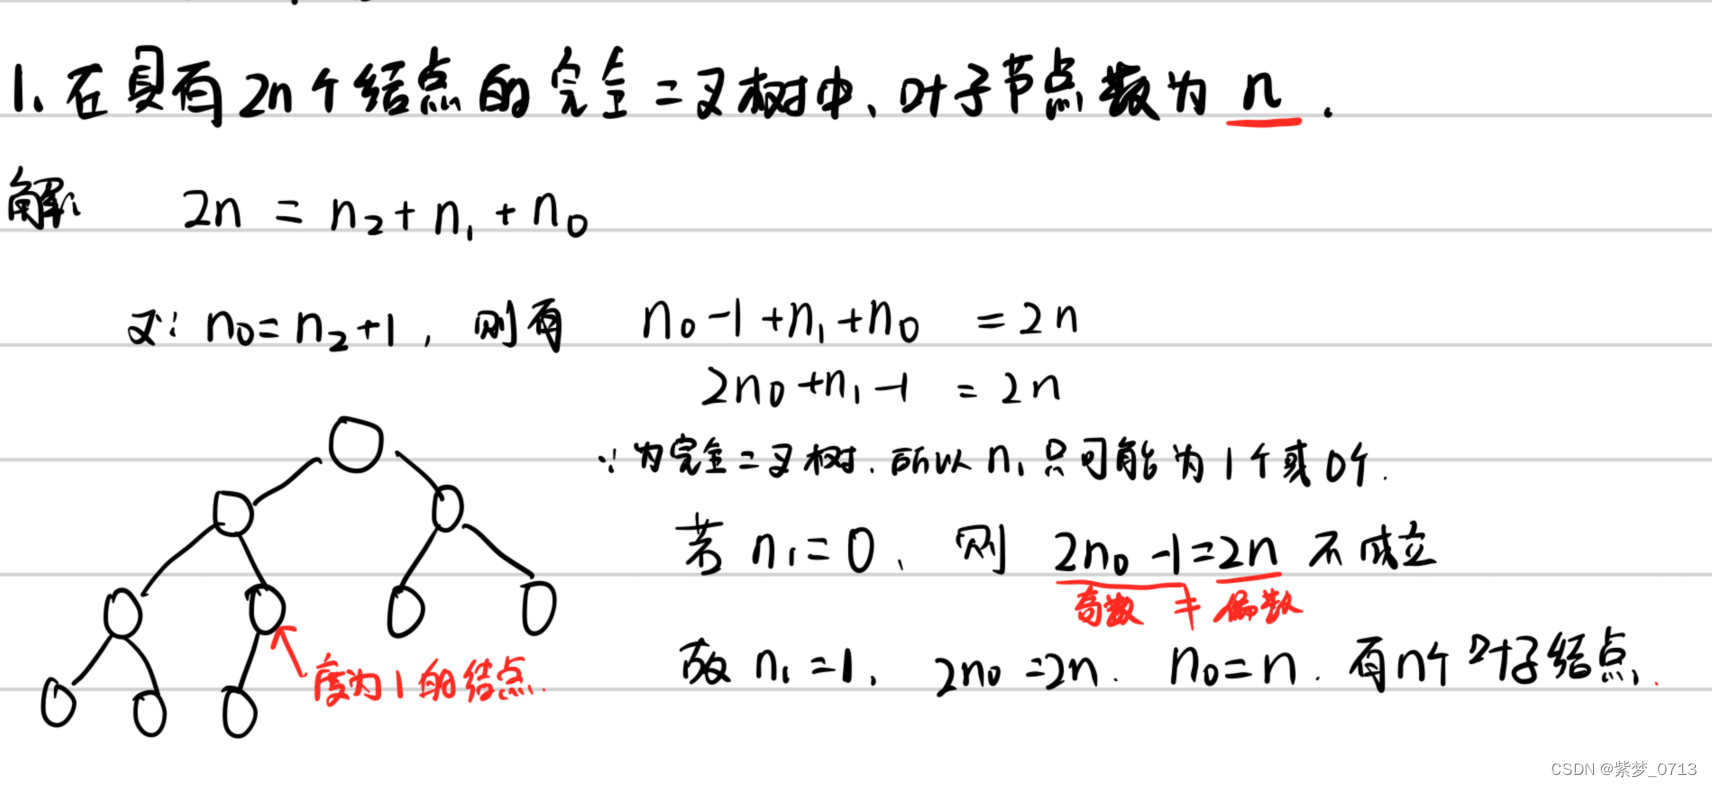 1、在具有2n个结点的完全二叉树中、叶子节点数为 n .
解: 2n = n₂+n₁+n₀
又∵ n₀=n₂+1, 则有 n₀-1+n₁+n₀ =2n
2n₀+n₁-1 = 2n
∵为完全二叉树.所以n₁只可能为1个或0个.
若 n₁=0、则 2n₀-1=2n 不成立
奇数 ≠ 偏数
故 n₁=1, 2n₀=2n. n₀=n. 有n个叶子结点.
度为1的结点.
CSDN @紫梦_0713